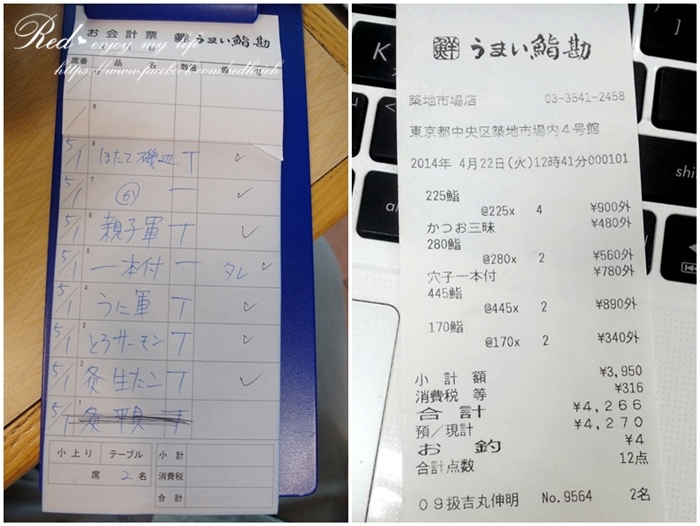 Red❤enjoy my life
https://www.facebook.com/redhuch
お会計票 鮮 うまい鮨勘
席番 品 名 数量
8
5/1 ほたて磯辺 T ✓
7
5/1 ✓
6
5/1 親子軍 T ✓
5
5/1 一本付 一 タレ ✓
4
5/1 うに軍 T ✓
3
5/1 とろサーモン T ✓
2
5/1 炙生たこ T ✓
1
5/1
小上り テーブル
席 2名
小計
消費税
合計
鮮 うまい鮨勘
築地市場店 03-3541-2458
東京都中央区築地市場内4号館
2014年 4月22日(火)12時41分000101
225鮨
@225x 4 ¥900外
かつお三昧 ¥480外
280鮨
@280x 2 ¥560外
穴子一本付 ¥780外
445鮨
@445x 2 ¥890外
170鮨
@170x 2 ¥340外
小計額 ¥3,950
消費税等 ¥316
合計 ¥4,266
預/現計 ¥4,270
お釣 ¥4
合計点数 12点
09扱吉丸伸明 No.9564 2名
K
alt
shi